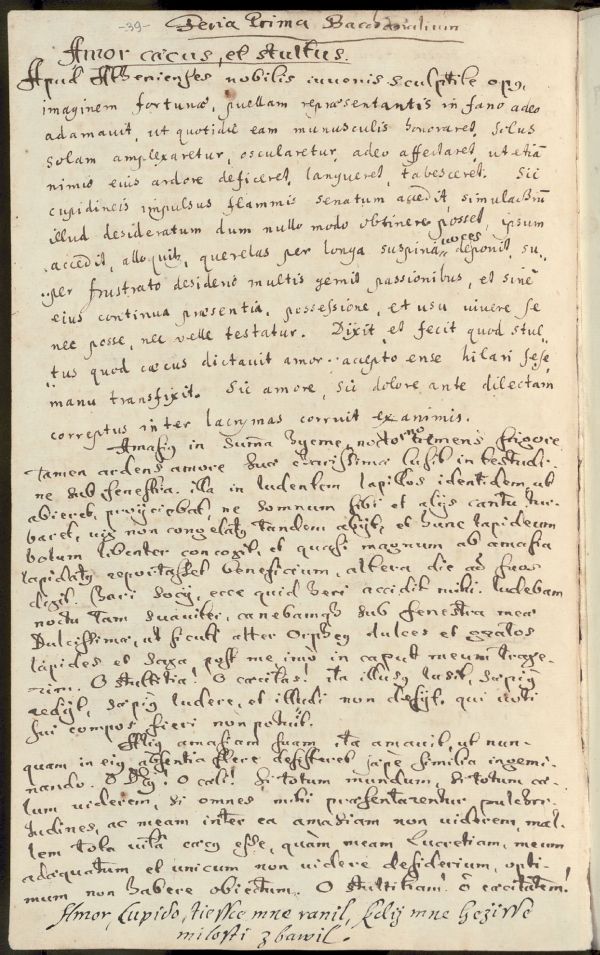 -39- Feria Prima Bacchanalium
Amor cæcus, et stultus.
Apud Athenienses nobilis iuvenis sculptile opq,
imaginem fortunæ, puellam repræsentantis in fano adeo
adamavit, ut quotidie eam munusculis honoraret, solus
solam amplexaretur, oscularetur, adeo affectaret, ut etiã
nimio eius ardore deficeret, langueret, tabesceret. Sic
cupidineis impulsus flammis senatum accedit, simulacrũ
illud desideratum dum nullo modo obtinere posset, ipsum
accedit, alloquit, querelas per longa suspiria voces deponit, su-
per frustrato desiderio multis gemit passionibus, et sine
eius continua præsentia, possessione, et usu vivere se
nec posse, nec velle testatur. Dixit et fecit quod stul-
tus quod cæcus dictavit amor. accepto ense hilari sese
manu transfixit. Sic amore, sic dolore ante dilectam
correptus inter lacrymas corruit exanimis.
Amasiq in suma hyeme, nocturno tremens frigore
tamen ardens amore suæ charissimæ lusit in testudi-
ne sub fenestra. illa in ludentem lapillos identidem, ut
abiret, proyciebat, ne somnum sibi et alijs cantu tur-
baret, vix non congelatq tandem abijt, et hunc lapideum
botum libenter concoxit, et quasi magnum ab amasia
lapidatq reportasset beneficium, altera die ad suos
dixit. Chari socij, ecce quid heri accidit mihi. ludebam
noctu tam suaviter, canebamq sub fenestra meæ
Dulcissimæ, ut sicuti alter Orpheq dulces et gratos
lapides et saxa, post me, imò in caput meum traxe-
rim. O stultitia! O cæcitas! ita illusq lusit, sæpiq
redijt, sæpiq ludere, et illudi non desijt, qui voti
sui compos fieri non potuit.
Aliq amasiam suam ita amavit, ut nun-
quam in eiq absentia flere desisteret, sæpe similia ingemi-
nando. O Dij! O cæli! si totum mundum, si totum cæ-
lum viderem, si omnes mihi præsentarentur pulchri-
tudines, ac meam inter ea amasiam non viderem, mal-
lem tota vita cæcq esse, quàm meam Lucretiam, meum
adæquatum et unicum non videre desiderium, opti-
mum non habere obiectum. O stultitiam! ô cæcitatem!
Amor, Cupido, tiessce mne ranil, kdij mne hezisse
milosti zbawil.